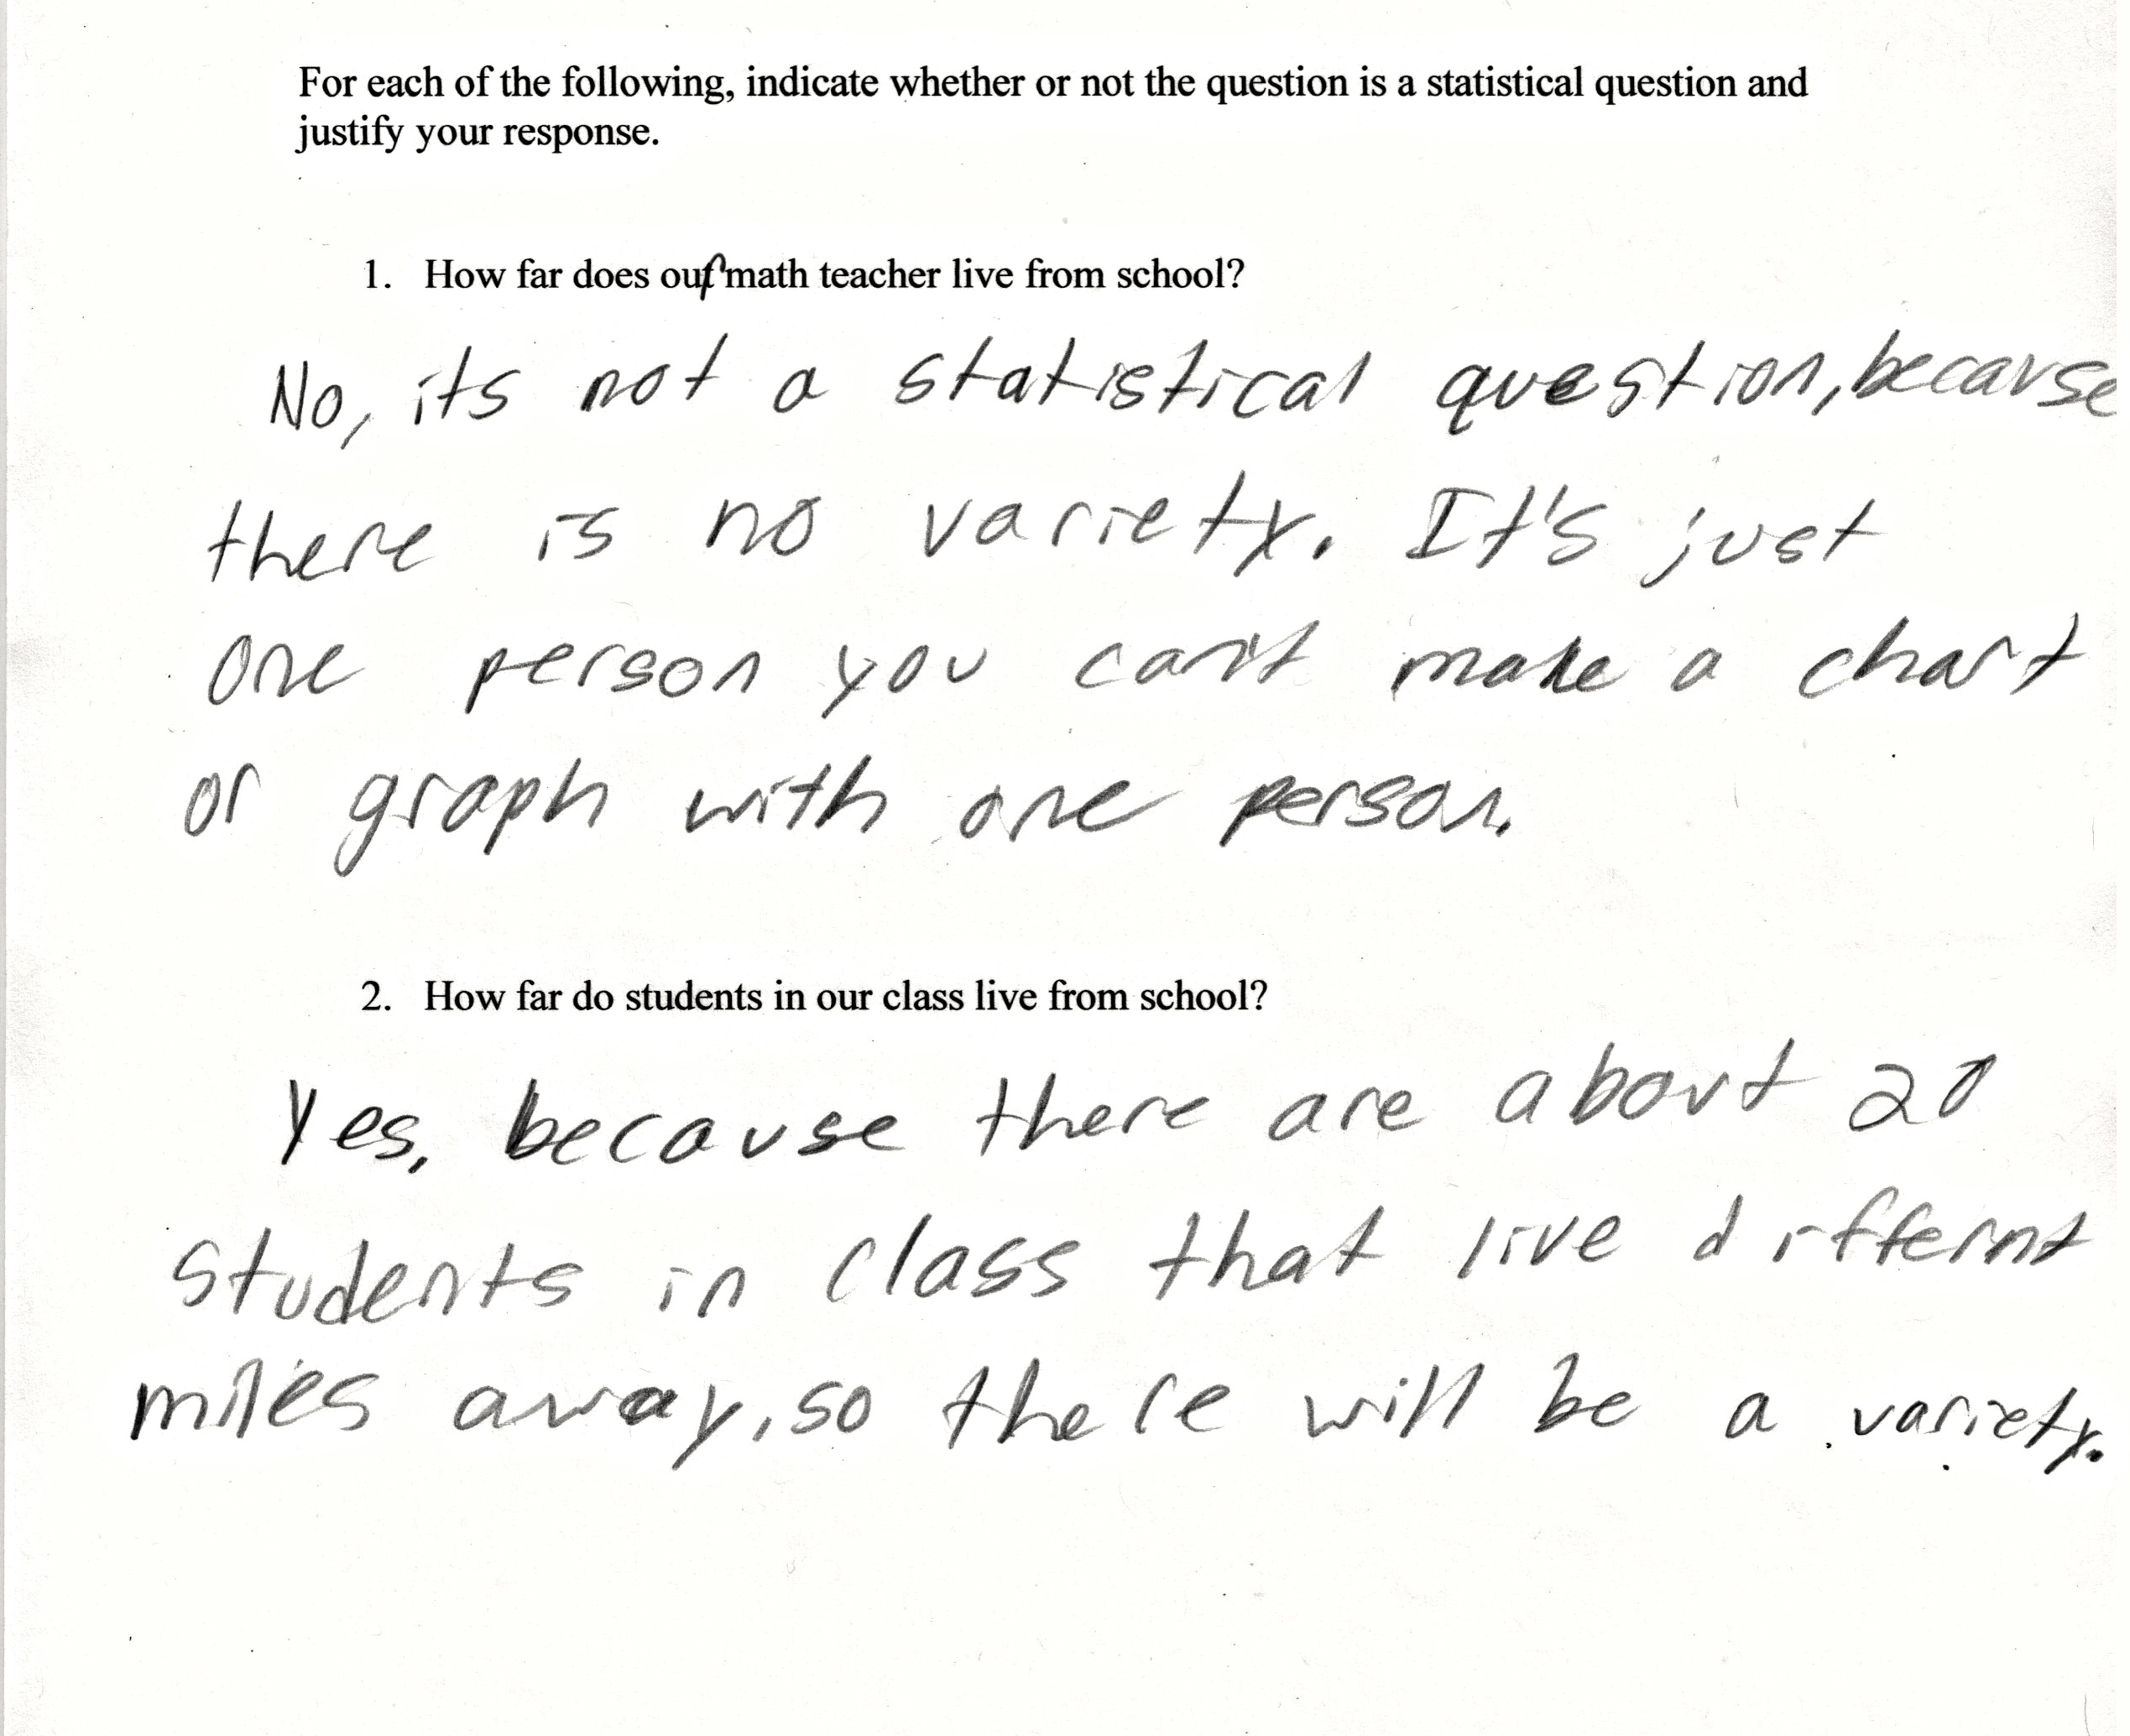 For each of the following, indicate whether or not the question is a statistical question and
justify your response.
1. How far does our math teacher live from school?
No, its not a statistical question, because
there is no variety. It's just
one person you can't make a chart
or graph with one person.
2. How far do students in our class live from school?
Yes, because there are about 20
students in class that live differnt
miles away, so there will be a variety.